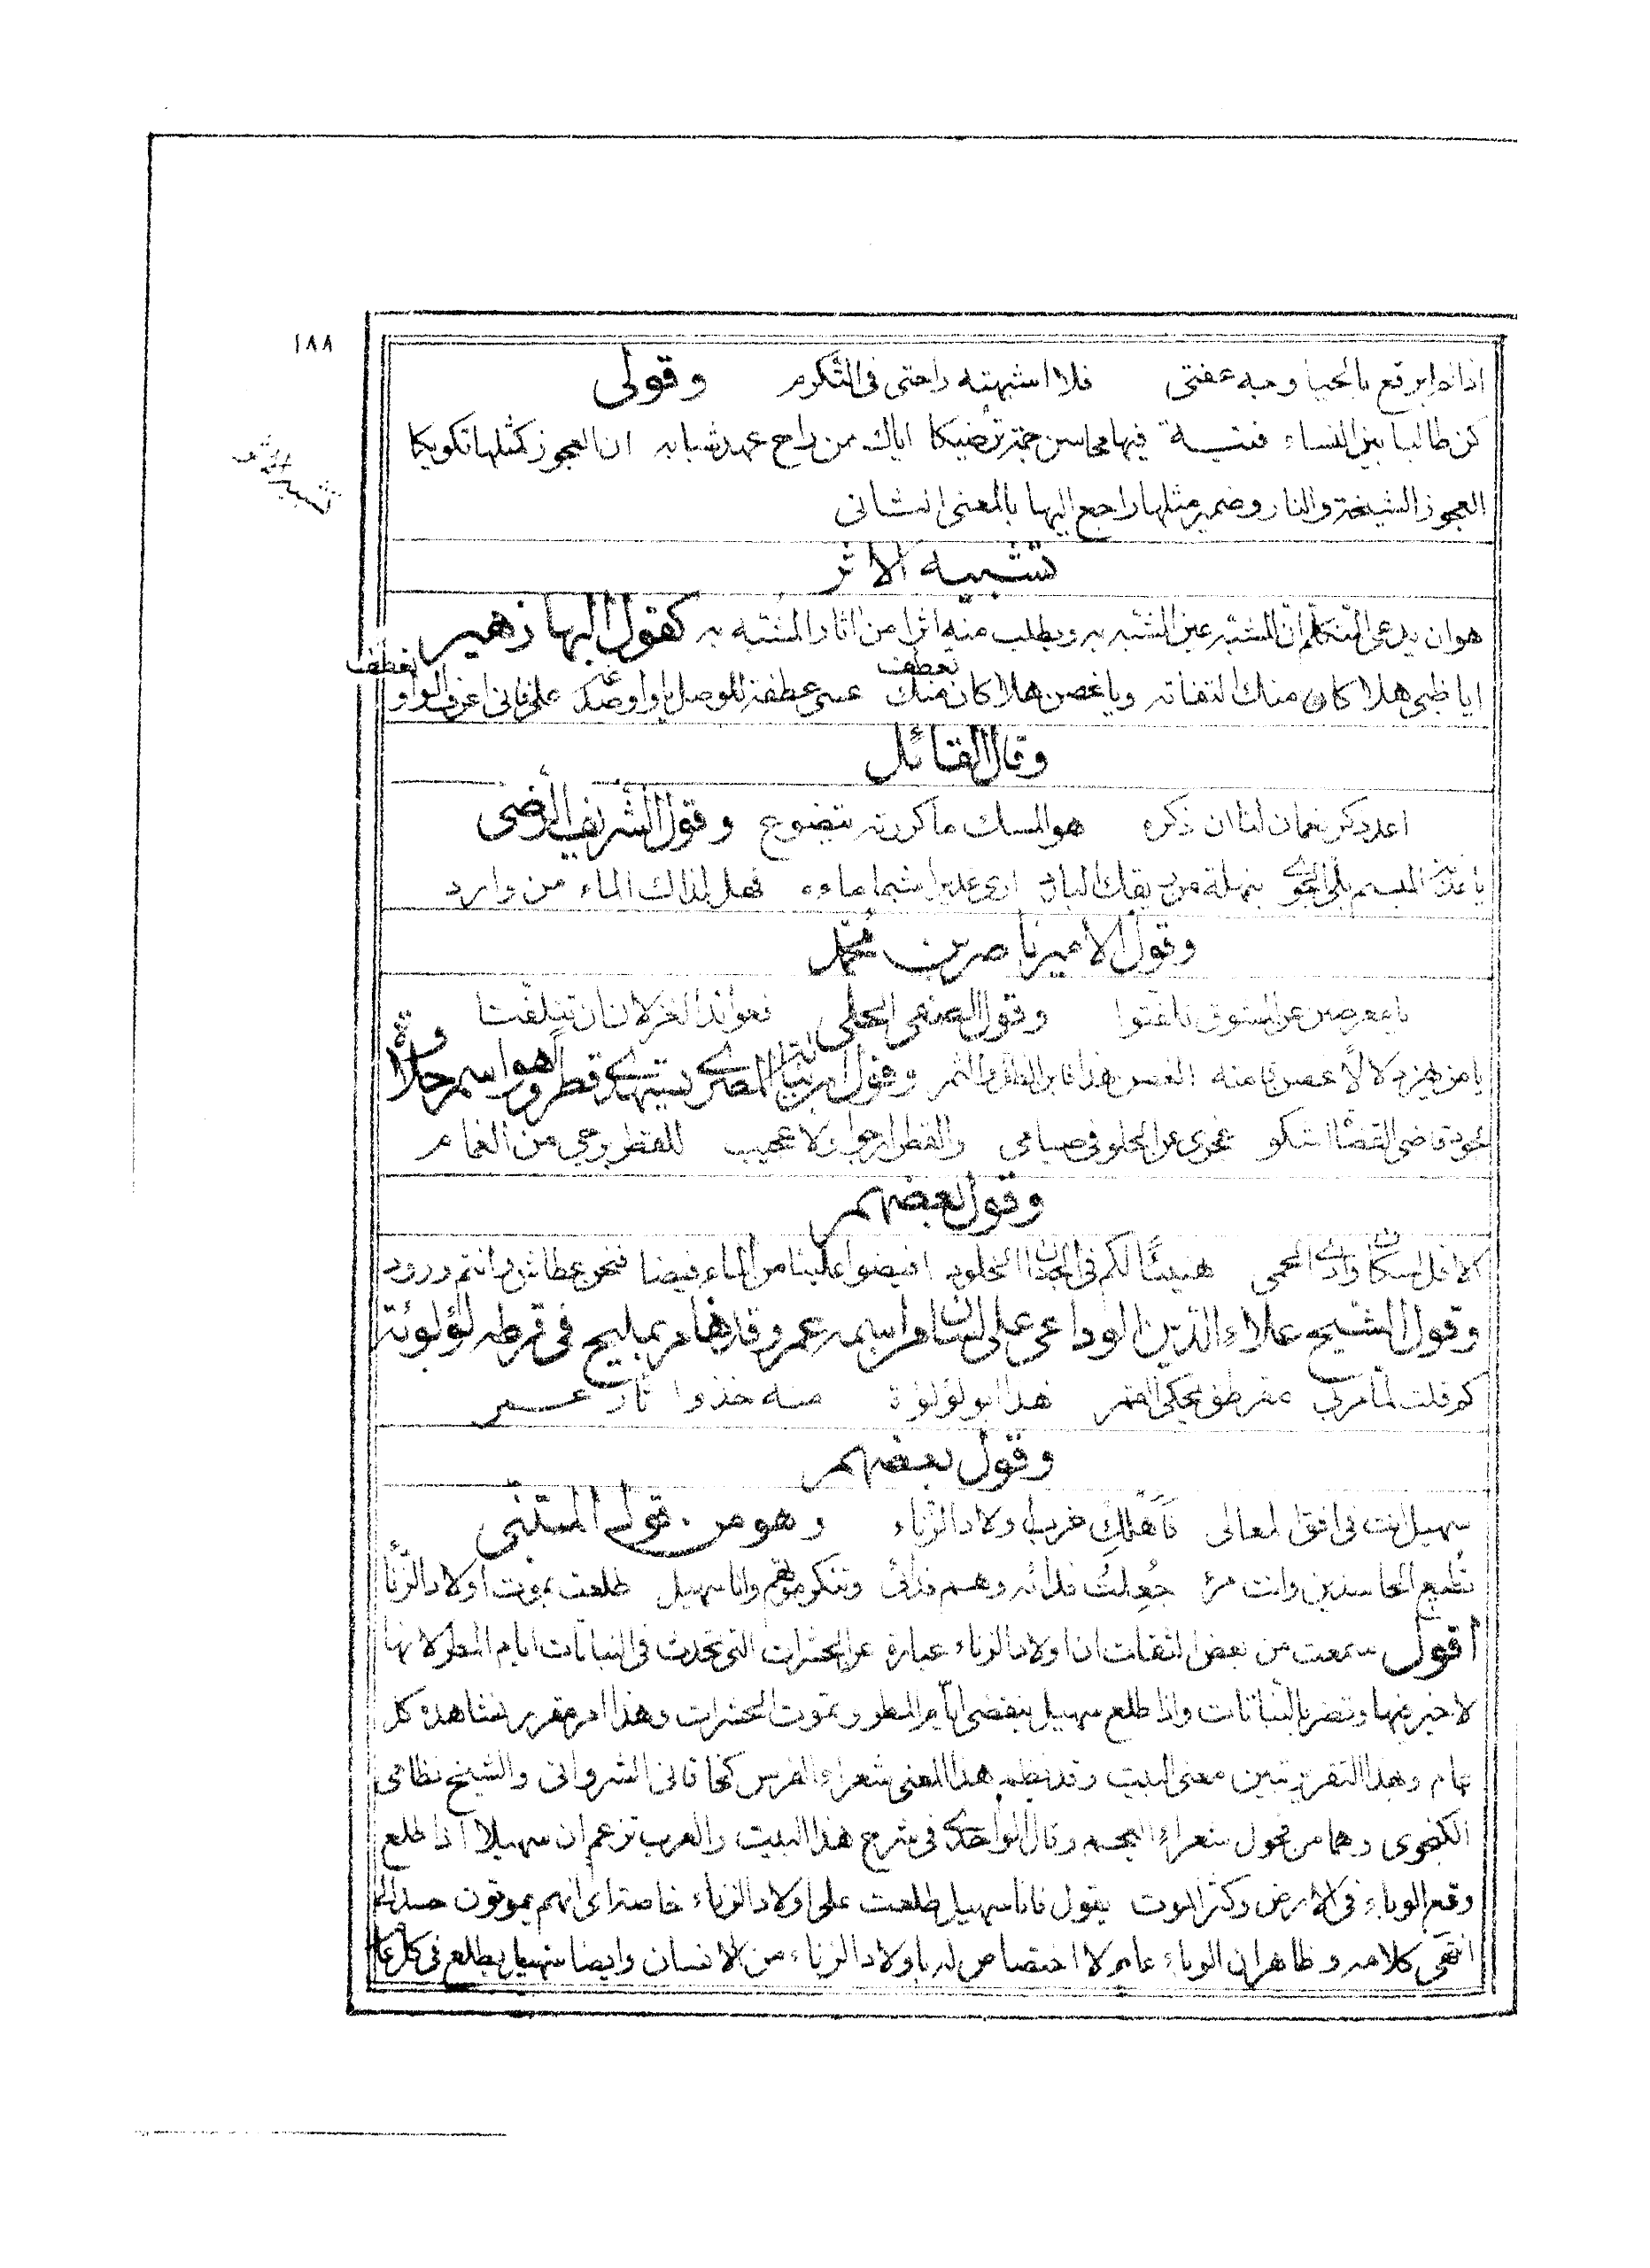 ١٨٨
اذا انا لم ابرقع بالحيا وجه عفتى فلا اشبهته راحتى فى التكرم وقولى
كن طالبا بين النساء فتية فيها محاسن جمة ترضيكا اياك من راح عهد شبابه ان العجوز كمثلها تكويكا
العجوز الشيخة والنار وضمير مثلها راجع اليها بالمعنى الثانى
تشبيه الاثر
هو ان يدعى المتكلم ان المشبه عين المشبه به ويطلب منه اثرا من اثار المشبه به كقول البها زهير
ايا ظبى هلا كان منك التفاته ويا غصن هلا كان منك تعطف عسى عطفة للوصل يا واو صدغه على فانى اعرف الواو تعطف
وقال القائل
اعد ذكر نعمان لنا ان ذكره هو المسك ما كررته يتضوع وقول الشريف الرضى
يا عذب المبسم بلى الجوى بنهلة من ريقك البارد ارى غديرا شبما ماءه فهل لذاك الماء من وارد
وقول الامير ناصر بن محمد
يا معرضين عن المشوق تلفتوا فعوائد الغزلان ان تتلفتا وقول الصفى الحلى
يا من يهز دلالا غصن قامته الغصن هذا فاين الظل والثمر وقول ابن نباتة المصرى يستهدى قطر وهو اسم حلاوة
لجود قاضى القضاة اشكو عجزى عن الحلو فى صيامى والقطر ارجو ولا عجيب للقطر يرجى من الغمام
وقول بعضهم
الا قل لسكان وادى الحمى هنيئا لكم فى الجنان الخلود افيضوا علينا من الماء فيضا فنحن عطاش وانتم ورود
وقول الشيخ علاء الدين الوداعى على لسان امر اسمه عمر وقد هام بمليح فى قرطه لؤلؤئة
كم قلت لما مر بى مقرطق يحكى القمر هذا ابو لؤلؤة منه خذوا ثار عمر
وقول بعضهم
سهيل انت فى افق المعالى فاهلك غربا ولاد الزناء وهو من قول المتنبى
تطيع الحاسدين وانت مرء جعلت فدائه وهم فدائى وتنكر موتهم وانا سهيل طلعت بموت اولاد الزنا
اقول سمعت من بعض الثقات ان اولاد الزناء عبارة عن الحشرات التى تحدث فى النباتات ايام المطر لانها
لا خير فيها وتضر بالنباتات واذا طلع سهيل ينقضى ايام المطر وتموت الحشرات وهذا امر مقرر نشاهده كل
عام وبهذا التقرير تبين معنى البيت وقد نظم هذا المعنى شعراء الفرس كخاقانى الشروانى والشيخ نظامى
الكنجوى وهما من فحول شعراء العجم وقال الواحدى فى شرح هذا البيت والعرب تزعم ان سهيلا اذا طلع
وقع الوباء فى الارض وكثر الموت يقول فانا سهيل طلعت على اولاد الزناء خاصة اى انهم يموتون حسدا لى
انتهى كلامه وظاهر ان الوباء عام لا اختصاص له باولاد الزناء من الانسان وايضا سهيل يطلع فى كل عام